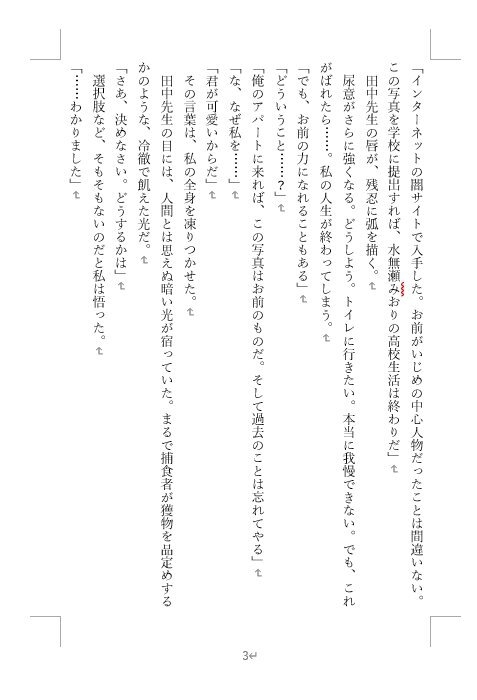 「インターネットの闇サイトで入手した。お前がいじめの中心人物だったことは間違いない。
この写真を学校に提出すれば、水無瀬みおりの高校生活は終わりだ」
田中先生の唇が、残忍に弧を描く。
尿意がさらに強くなる。どうしよう。トイレに行きたい。本当に我慢できない。でも、これ
がばれたら……。私の人生が終わってしまう。
「でも、お前の力になれることもある」
「どういうこと……？」
「俺のアパートに来れば、この写真はお前のものだ。そして過去のことは忘れてやる」
「な、なぜ私を……」
「君が可愛いからだ」
その言葉は、私の全身を凍りつかせた。
田中先生の目には、人間とは思えぬ暗い光が宿っていた。まるで捕食者が獲物を品定めする
かのような、冷徹で飢えた光だ。
「さあ、決めなさい。どうするかは」
選択肢など、そもそもないのだと私は悟った。
「……わかりました」
3